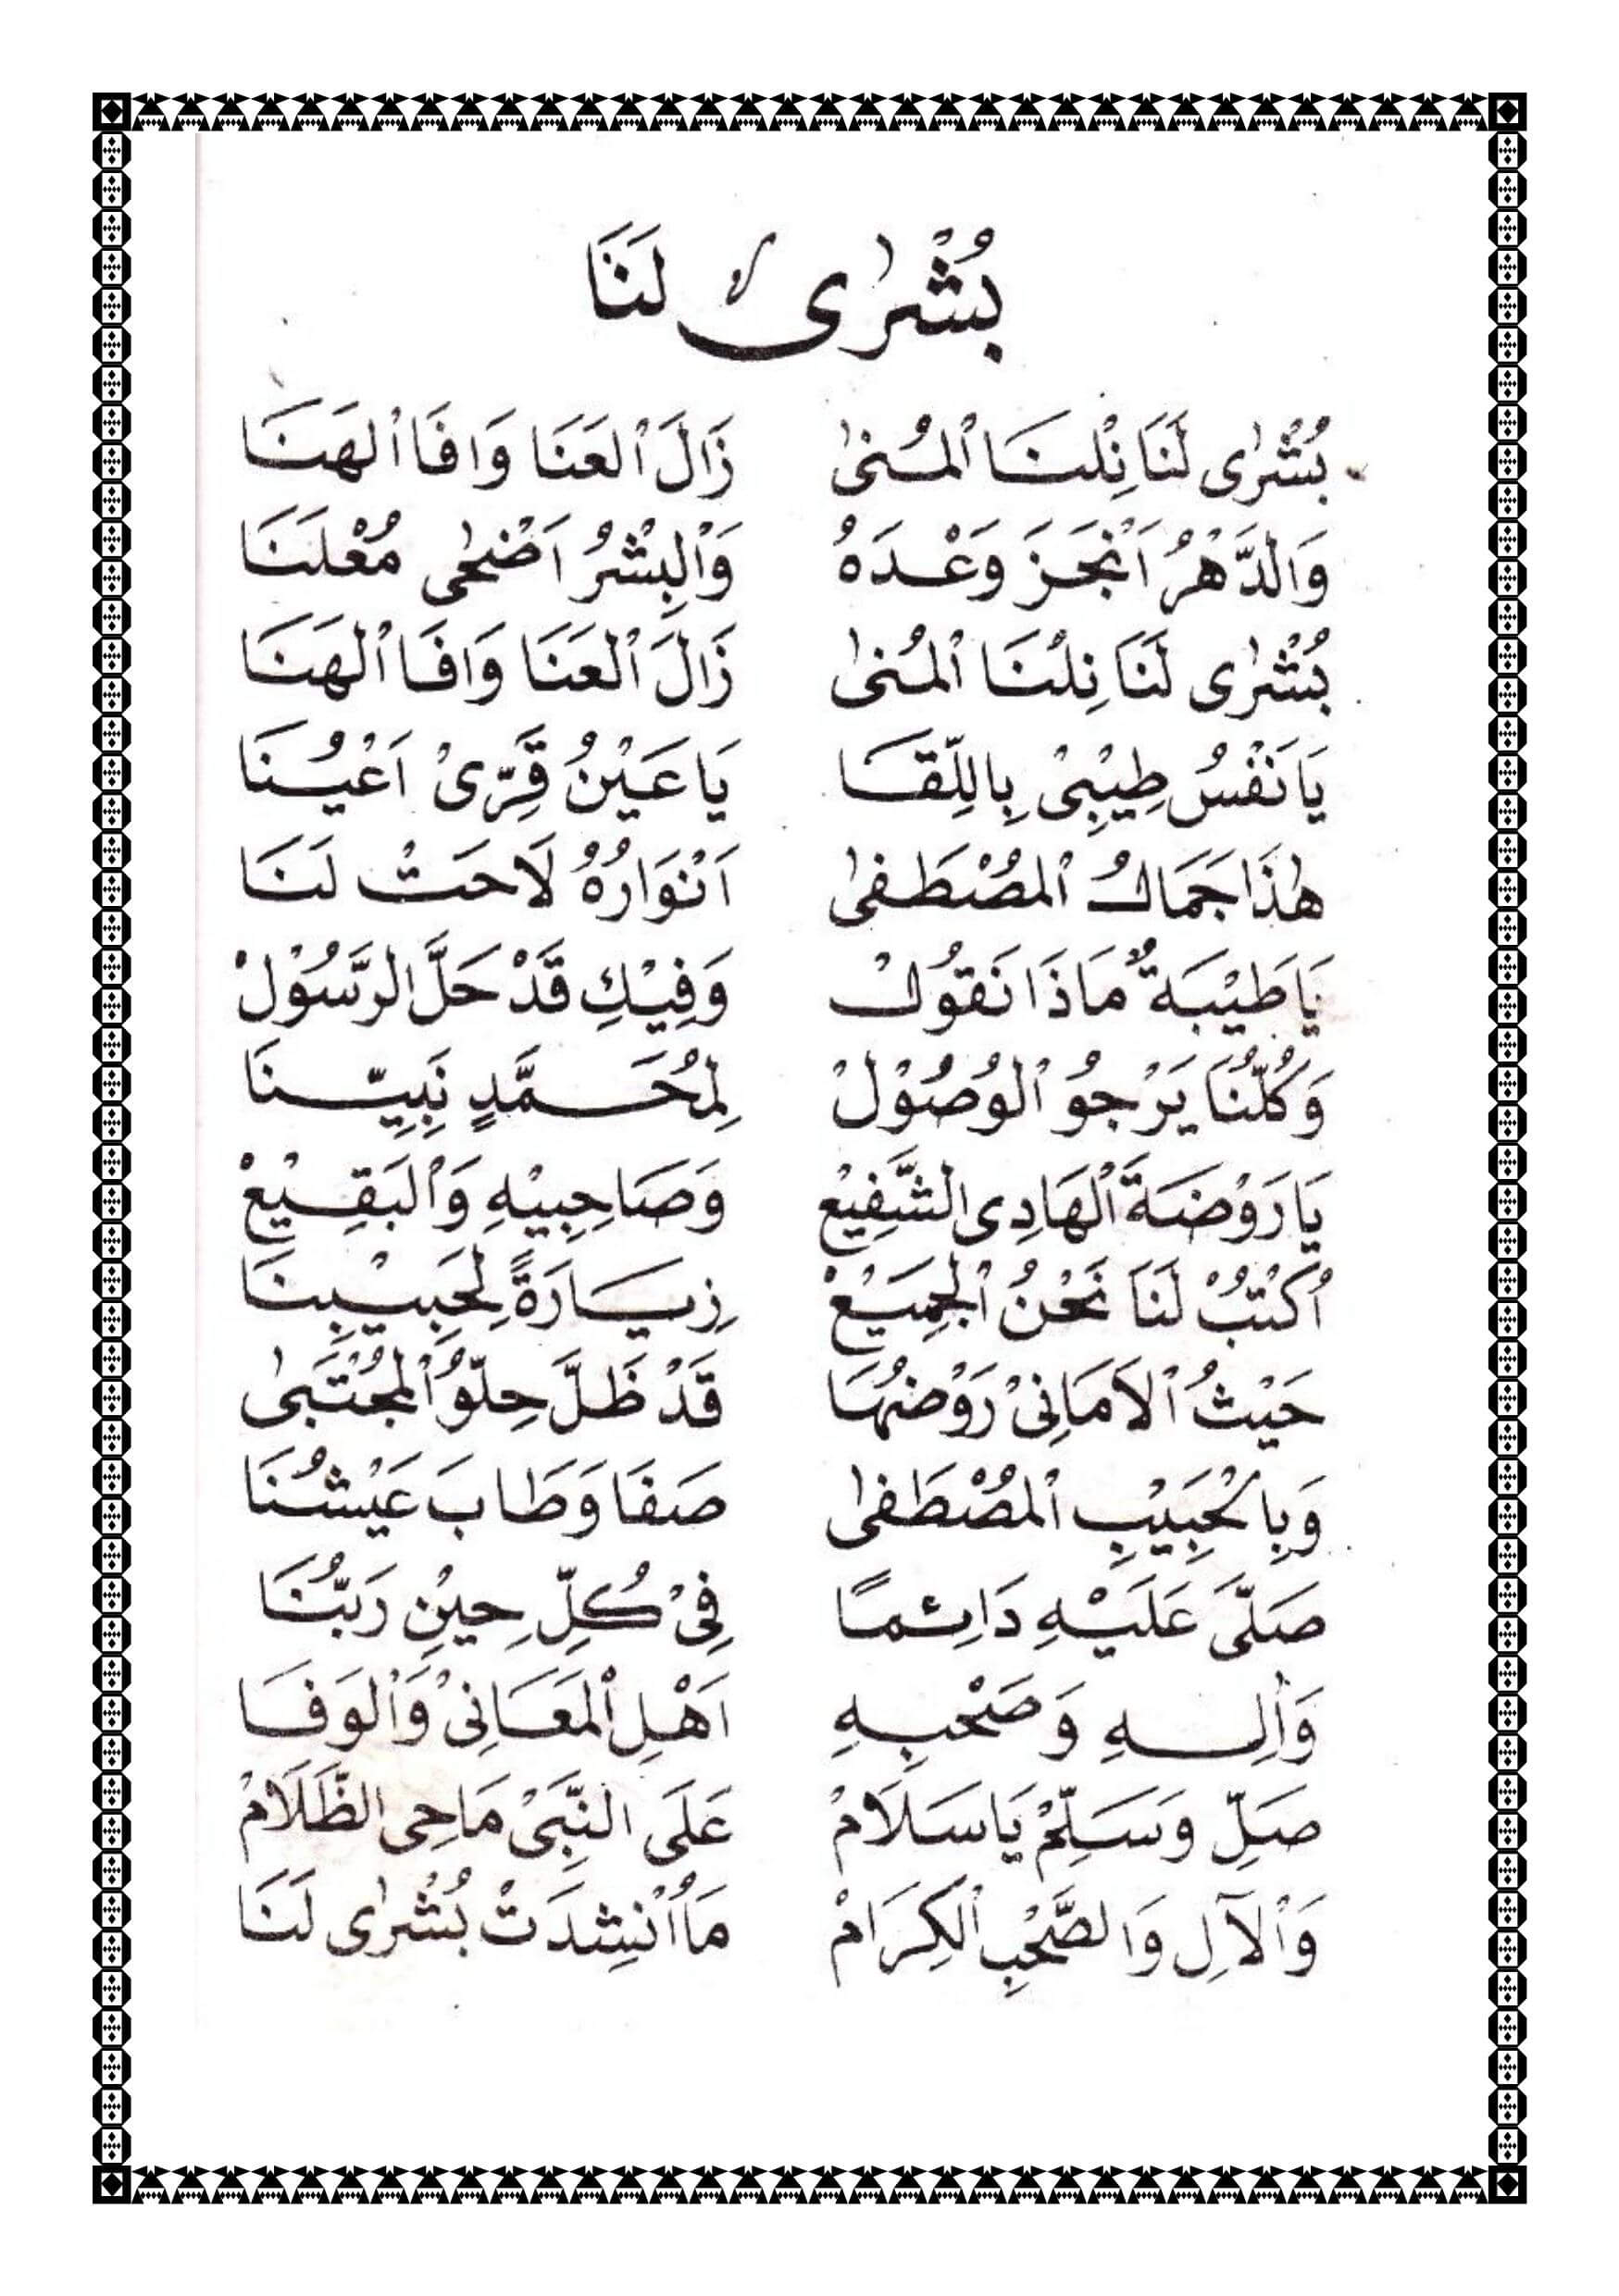 بُشْرٰى لَنَا
بُشْرٰى لَنَا نِلْنَا الْمُنٰى زَالَ الْعَنَا وَافَا الْهَنَا
وَالدَّهْرُ اَنْجَزَ وَعْدَهُ وَالْبِشْرُ اَضْحٰى مُعْلَنَا
بُشْرٰى لَنَا نِلْنَا الْمُنٰى زَالَ الْعَنَا وَافَا الْهَنَا
يَا نَفْسُ طِيْبِىْ بِاللِّقَا يَا عَيْنُ قَرِّىْ اَعْيُنَا
هٰذَا جَمَالُ الْمُصْطَفٰى اَنْوَارُهُ لَاحَتْ لَنَا
يَا طَيْبَةُ مَاذَا نَقُولْ وَفِيْكِ قَدْ حَلَّ الرَّسُوْلْ
وَكُلُّنَا يَرْجُو الْوُصُوْلْ لِمُحَمَّدٍ نَبِيِّنَا
يَا رَوْضَةَ الْهَادِى الشَّفِيْعْ وَصَاحِبِيْهِ وَالْبَقِيْعْ
اُكْتُبْ لَنَا نَحْنُ الْجَمِيْعْ زِيَارَةً لِحَبِيْبِنَا
حَيْثُ الْاَمَانِىْ رَوْضُهَا قَدْ ظَلَّ حِلّوُ الْمُجْتَبٰى
وَبِالْحَبِيْبِ الْمُصْطَفٰى صَفَا وَطَابَ عَيْشُنَا
صَلّٰى عَلَيْهِ دَائِمًا فِىْ كُلِّ حِيْنٍ رَبُّنَا
وَاٰلِهِ وَصَحْبِهِ اَهْلِ الْمَعَانِىْ وَالْوَفَا
صَلِّ وَسَلِّمْ يَا سَلَامْ عَلَى النَّبِىْ مَاحِى الظَّلَامْ
وَالْآلِ وَالصَّحْبِ الْكِرَامْ مَا اُنْشِدَتْ بُشْرٰى لَنَا